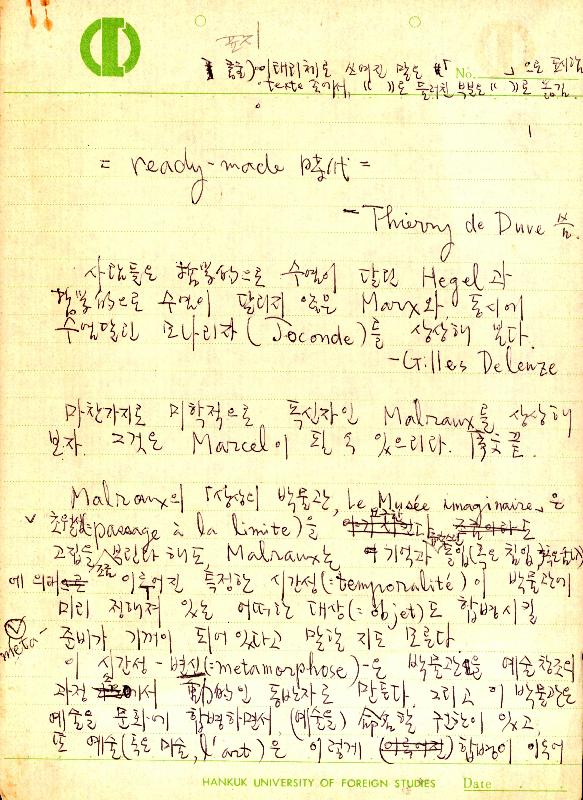 표지
주) 이태리체로 쓰여진 말은 「 No. 」 으로 표시함
texte 조에서, 《 》로 둘러친 부분도 《 》로 옮김.
1
= ready-made 時代 =
- Thierry de Duve 씀.
사람들은 哲學的으로 수염이 달린 Hegel과
哲學的으로 수염이 달리지 않은 Marx와 동시에
수염달린 모나리자 (Joconde)를 상상해 본다.
-Gilles Deleuze
마찬가지로 미학적으로 독신자인 Malraux를 상상해
보자. 그것은 Marcel이 될 수 있으리라. 끝.
Malraux의 「상상의 박물관, Le Musée imaginaire」은
passage à la limite)을
Malraux는 기억과
에 의해 이루어진 특정한 시간성(=temporalité)이 박물관에
미리 정해져 있는 어떠한 대상(=objet)도 합병시킬
준비가 기꺼이 되어 있다고 말할 지도 모른다
meta-
이 시간성 - 변신(=metamorphose)-은 박물관을 예술창조의
과정 에서 동반자로 만든다. 그리고 이 박물관은
예술을 문화에 합병하면서, (예술을) 命名할 권한이 있고,
또 예술(혹은 미술, l'art)은 이렇게 (이루어진) 합병이 이루어
HANKUK UNIVERSITY OF FOREIGN STUDIES Date